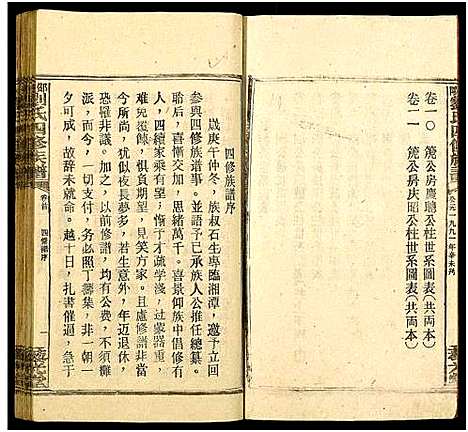 卷一〇 篼公房慶鵬公柱世系圖表(共両本)
卷二一 篼公房庆昭公柱世系圖表(共両本)
公元一九九一年辛未冬
四修族譜序
歲庚午仲冬，族叔石生專臨湘潭，邀予立回
參與四修族谱事。並語予已承族人公推任總纂。
聆后，喜懼交加，思緒萬千。喜景仰族中倡修有
人，四續家乘有望，懼予才疏學淺，过蒙器重，
难免覆餗，惧負期望，見笑方家。且慮修譜非當
今所尚，犹似夜長夢多，若生意外，年迈退休，
恐罹非議。加之，以前修譜，均有公费，不須攤
派，而今，一切支付，务必照丁籌集，非一朝一
夕可成，故辞未就命。越十日，扎書催逼，急于
卷首 四修譜序
一
劉氏四修族譜